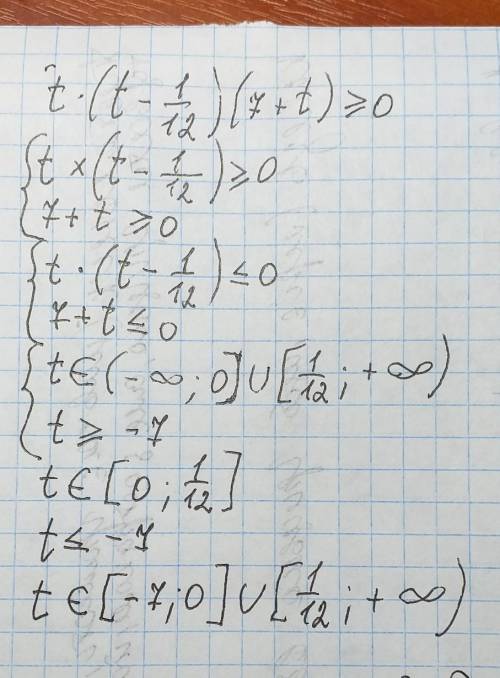 t · (t - 1/12) (7 + t) ≥ 0
{ t × (t - 1/12) ≥ 0
7 + t ≥ 0
{ t · (t - 1/12) ≤ 0
7 + t ≤ 0
{ t ∈ (-∞; 0] ∪ [1/12; +∞)
t ≥ -7
t ∈ [0; 1/12]
t ≤ -7
t ∈ [-7; 0] ∪ [1/12; +∞)